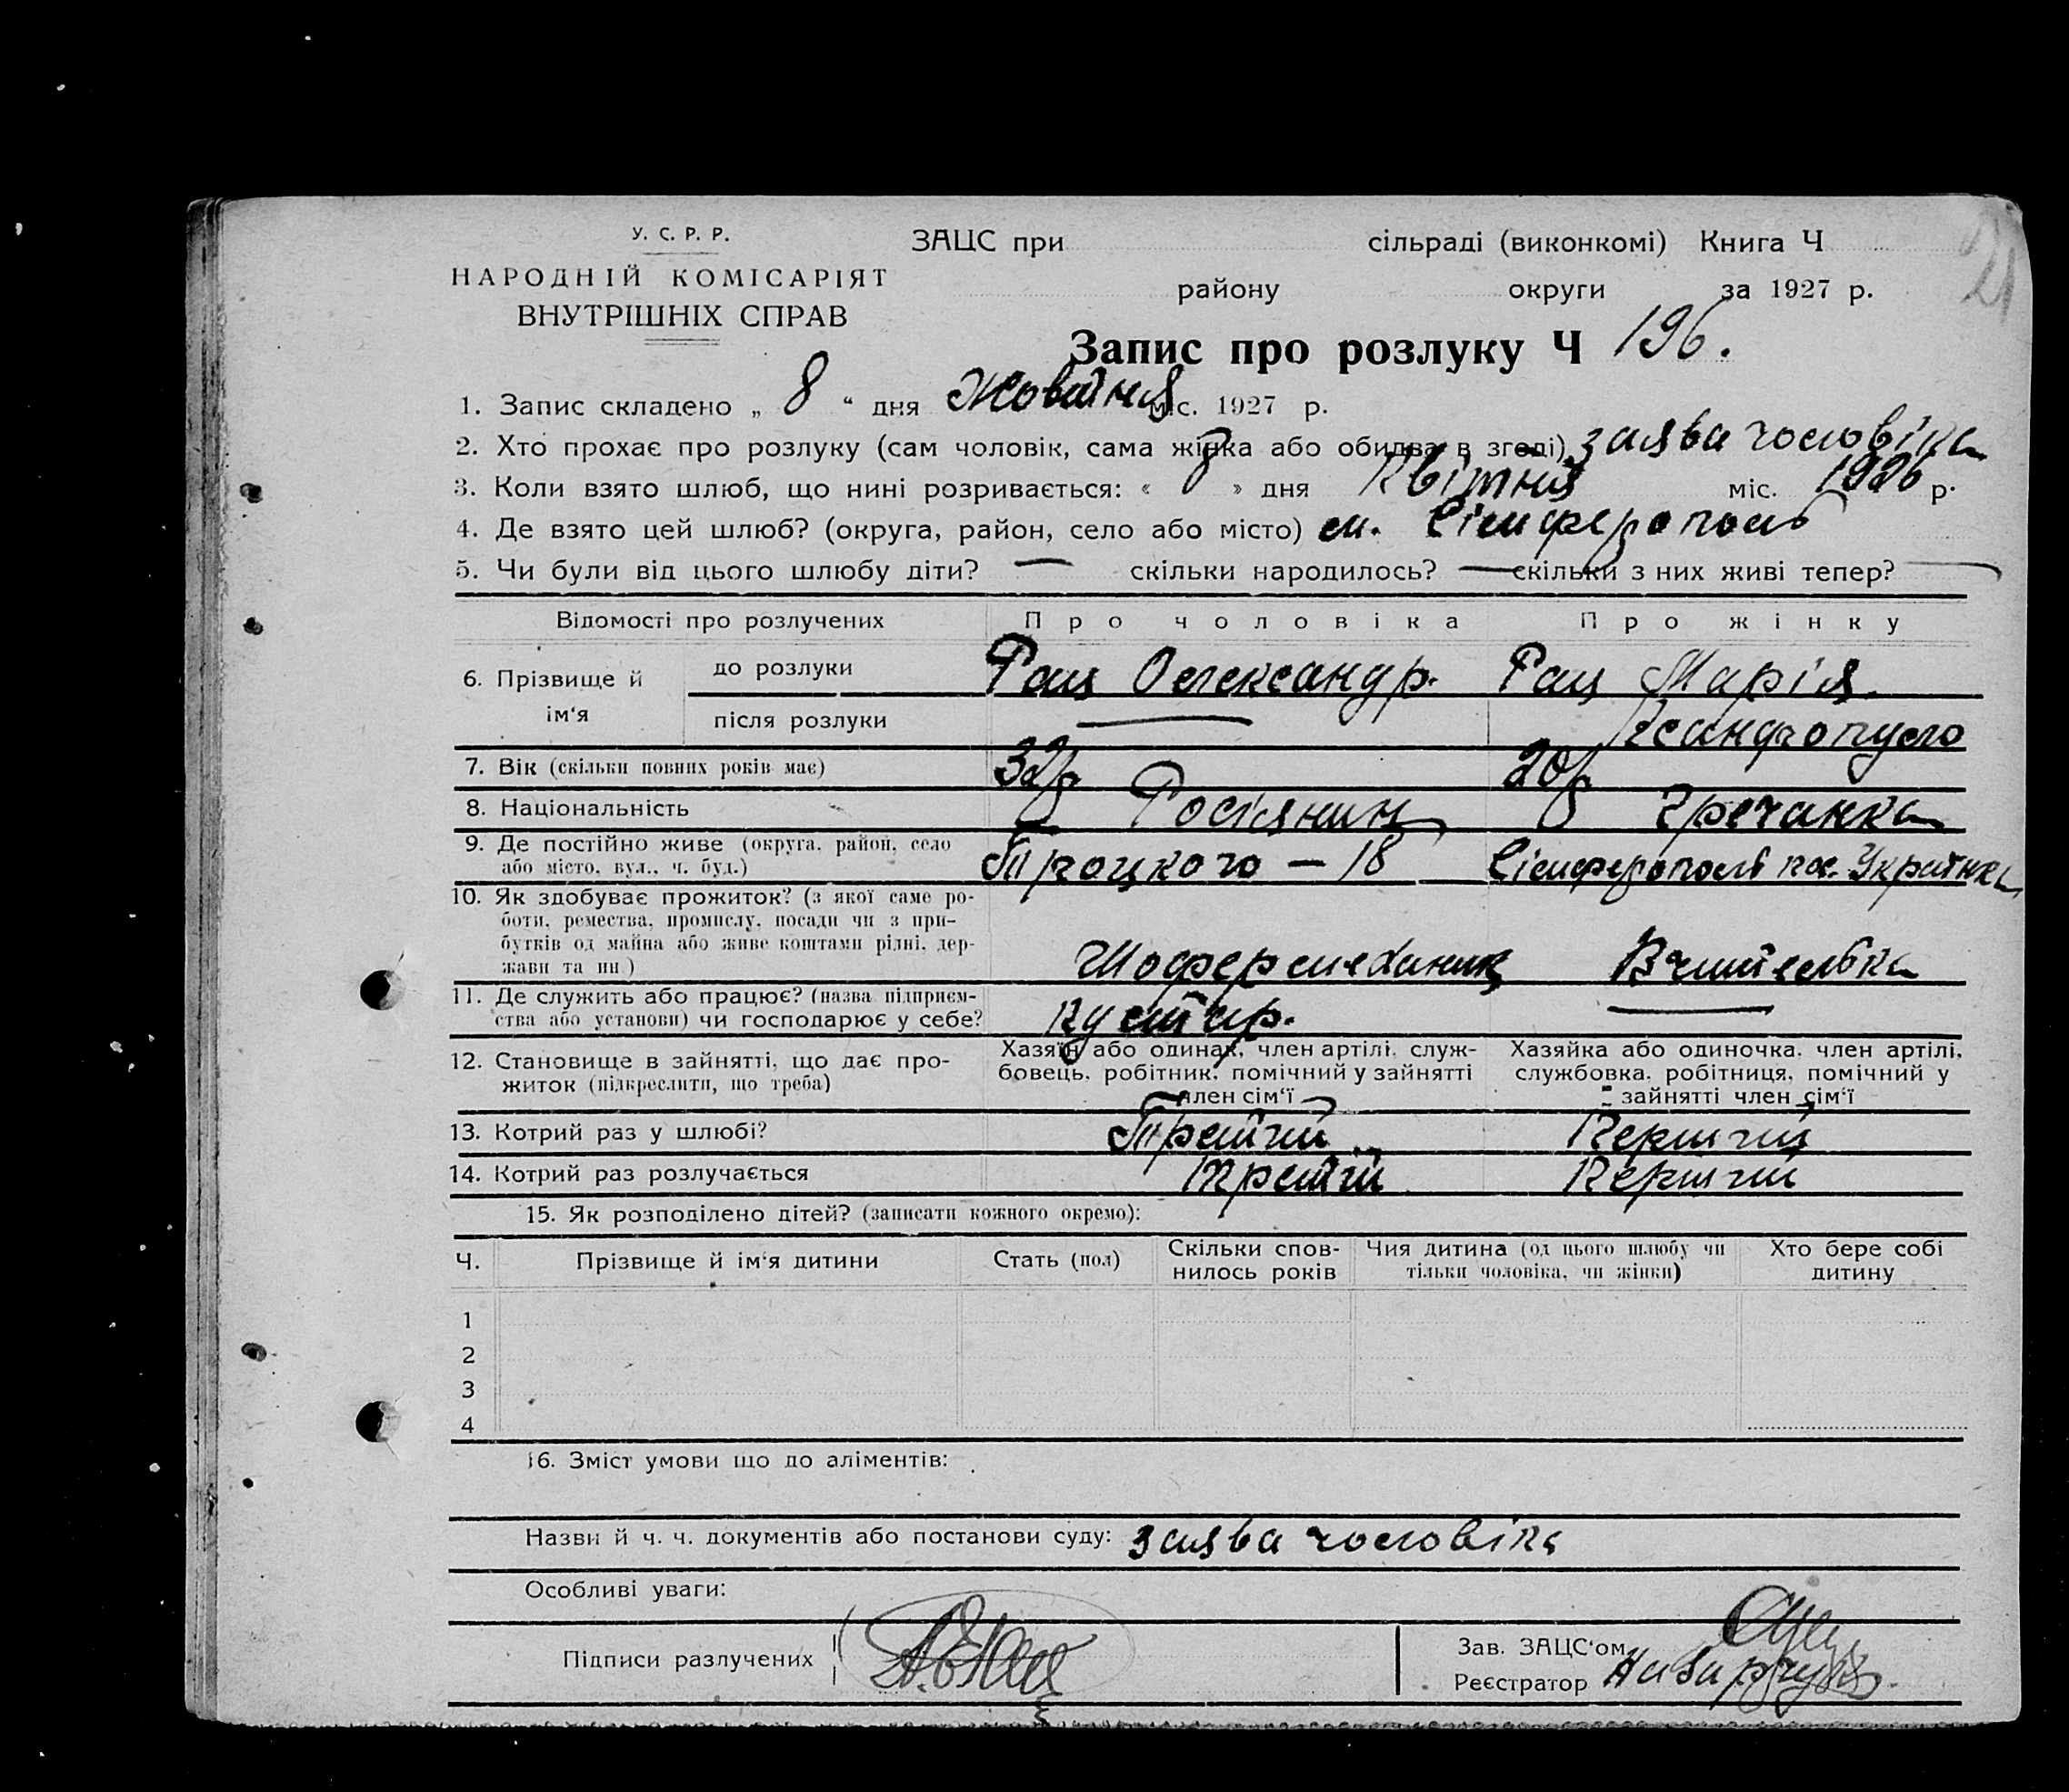 У. С. Р. Р.
НАРОДНІЙ КОМІСАРІЯТ
ВНУТРІШНІХ СПРАВ
ЗАЦС при сільраді (виконкомі) Книга Ч
району округи за 1927 р.
Запис про розлуку Ч 196.
1. Запис складено „ 8 “ дня Жовтня міс. 1927 р.
2. Хто прохає про розлуку (сам чоловік, сама жінка або обидва в згоді) заява чоловіка
3. Коли взято шлюб, що нині розривається: « 8 » дня Квітня міс. 1926 р.
4. Де взято цей шлюб? (округа, район, село або місто) м. Сімферополь
5. Чи були від цього шлюбу діти? — скільки народилось? — скільки з них живі тепер? —
Відомості про розлучених Про чоловіка Про жінку
6. Прізвище й ім'я
до розлуки Рац Олександр. Рац Марія.
після розлуки —
7. Вік (скільки повних років має) 32 20
8. Національність Росіянин Гречанка
9. Де постійно живе (округа, район, село
або місто, вул., ч. буд.) Троцкого — 18 Сімферополь
10. Як здобуває прожиток? (з якої саме ро-
боти, ремества, промислу, посади чи з при-
бутків од майна або живе коштами рідні, дер-
жави та ин) Шофер механик Вчителька
11. Де служить або працює? (назва підприєм-
ства або установи) чи господарює у себе? Кустар. —
12. Становище в зайнятті, що дає про-
житок (підкреслити, що треба)
Хазяїн або одинак, член артілі, служ-
бовець, робітник, помічний у зайнятті
член сім'ї
Хазяйка або одиночка, член артілі,
службовка, робітниця, помічний у
зайнятті член сім'ї
13. Котрий раз у шлюбі? Третій Перший
14. Котрий раз розлучається Третій Перший
15. Як розподілено дітей? (записати кожного окремо):
Ч. Прізвище й ім'я дитини Стать (пол) Скільки спов-
нилось років Чия дитина (од цього шлюбу чи
тільки чоловіка, чи жінки) Хто бере собі
дитину
1
2
3
4
16. Зміст умови що до аліментів:
Назви й ч. ч. документів або постанови суду: заява чоловіка
Особливі уваги:
Підписи разлучених
Зав. ЗАЦС'ом
Реєстратор